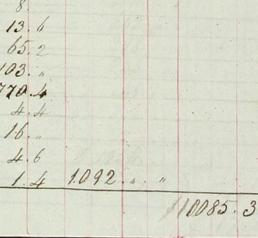 8
13.6
65.2
103.„
770.4
4.4
16.„
4.6
1.4 1092.„.„
10085.3